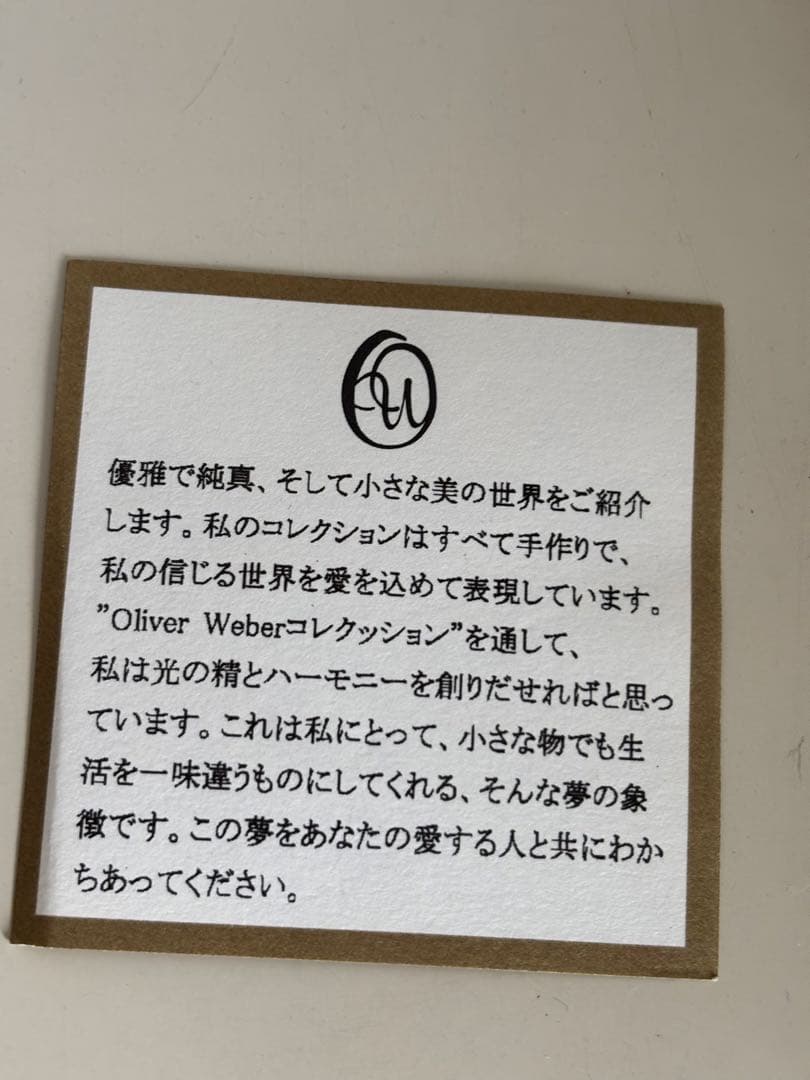 優雅で純真、そして小さな美の世界をご紹介
します。私のコレクションはすべて手作りで、
私の信じる世界を愛を込めて表現しています。
”Oliver Weberコレクッション”を通して、
私は光の精とハーモニーを創りだせればと思っ
ています。これは私にとって、小さな物でも生
活を一味違うものにしてくれる、そんな夢の象
徴です。この夢をあなたの愛する人と共にわか
ちあってください。